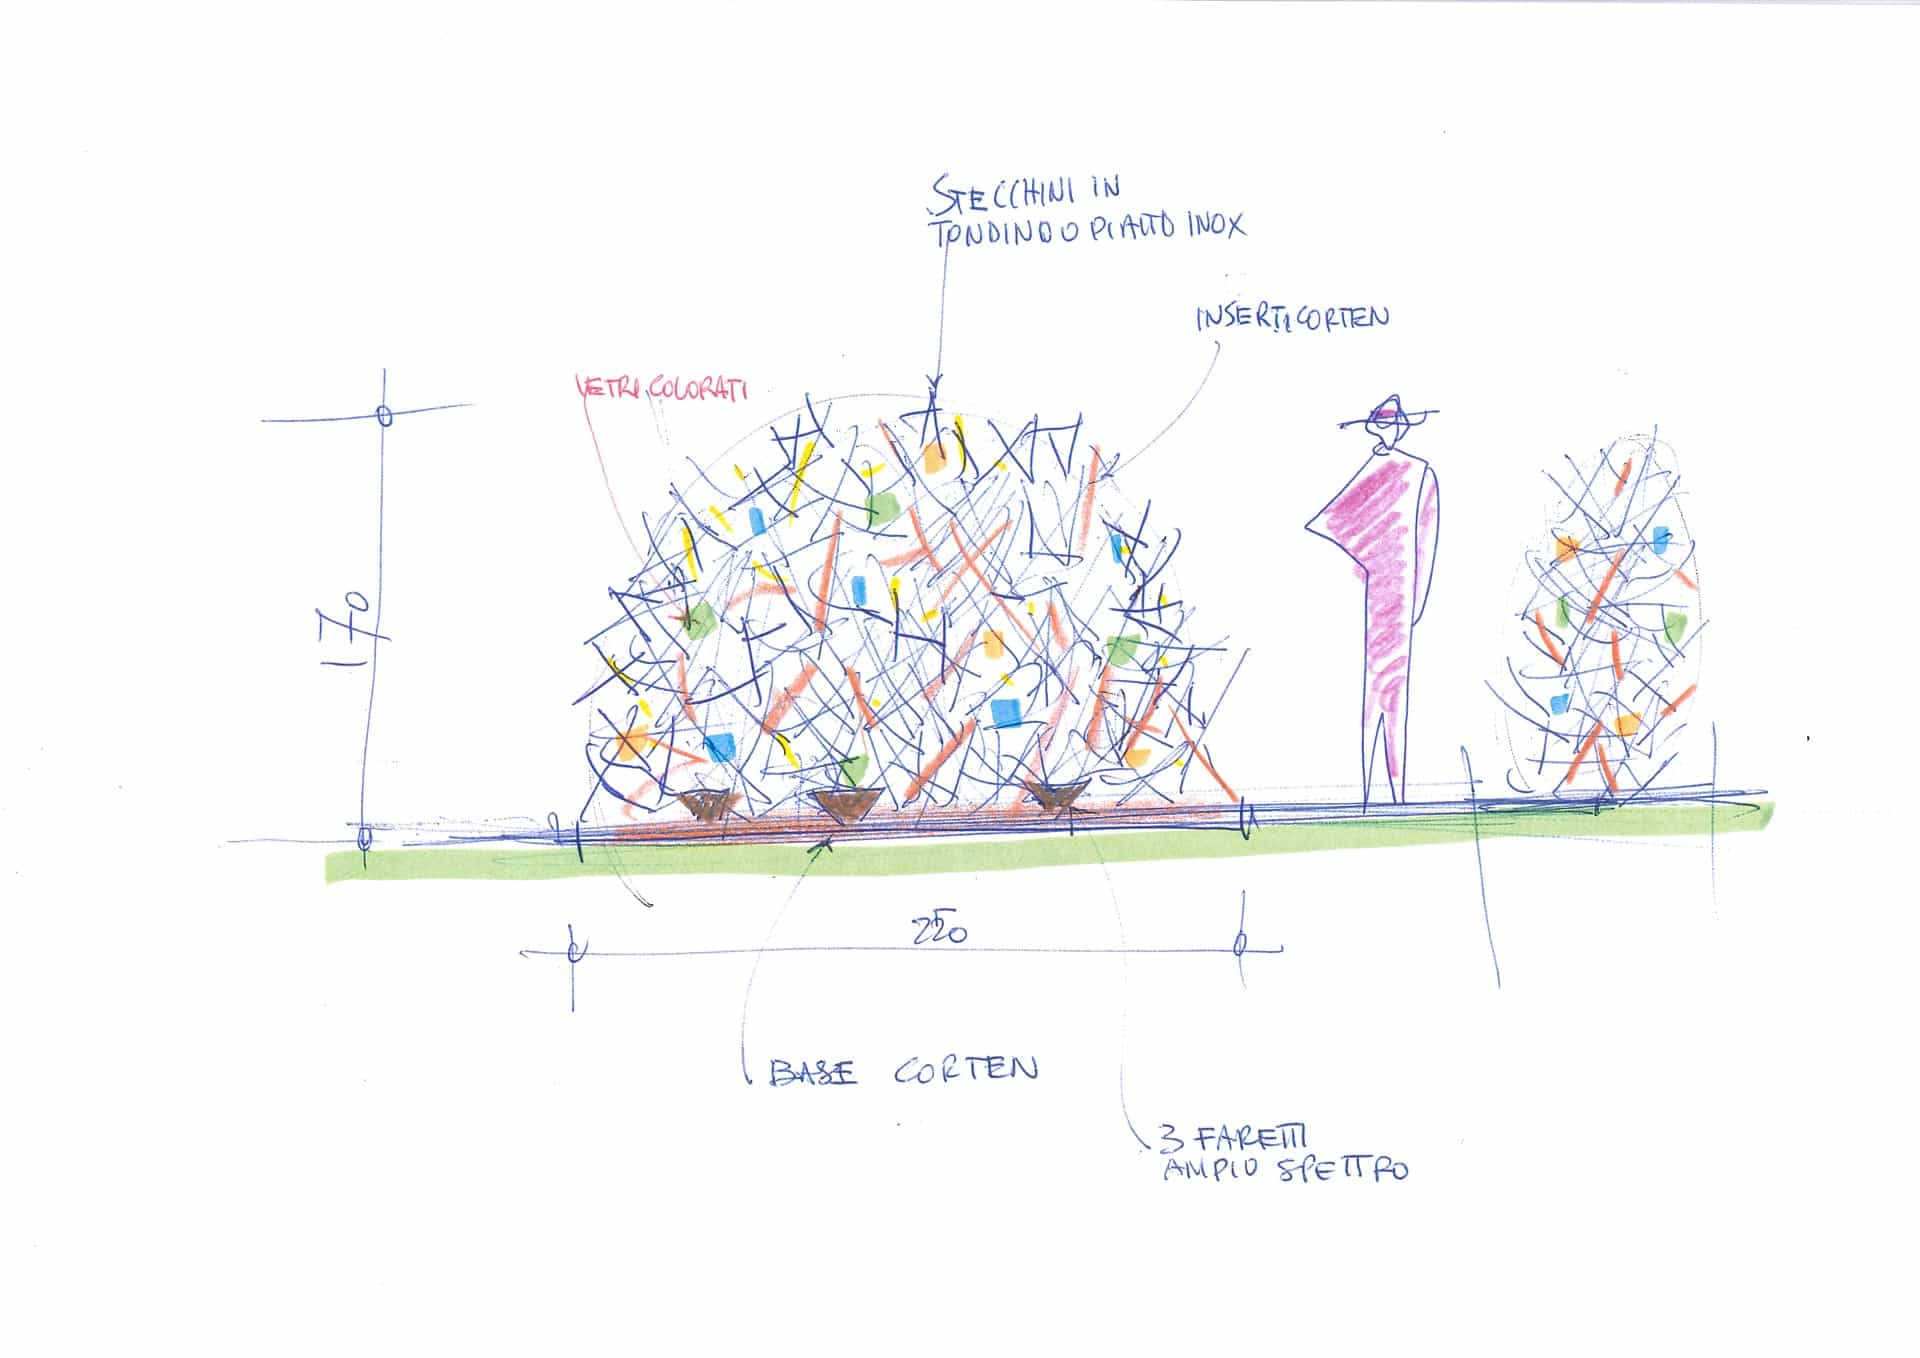 STECCHINI IN
TONDINO O PIATTO INOX
INSERTI CORTEN
VETRI COLORATI
170
220
BASE CORTEN
3 FARETTI
AMPIO SPETTRO